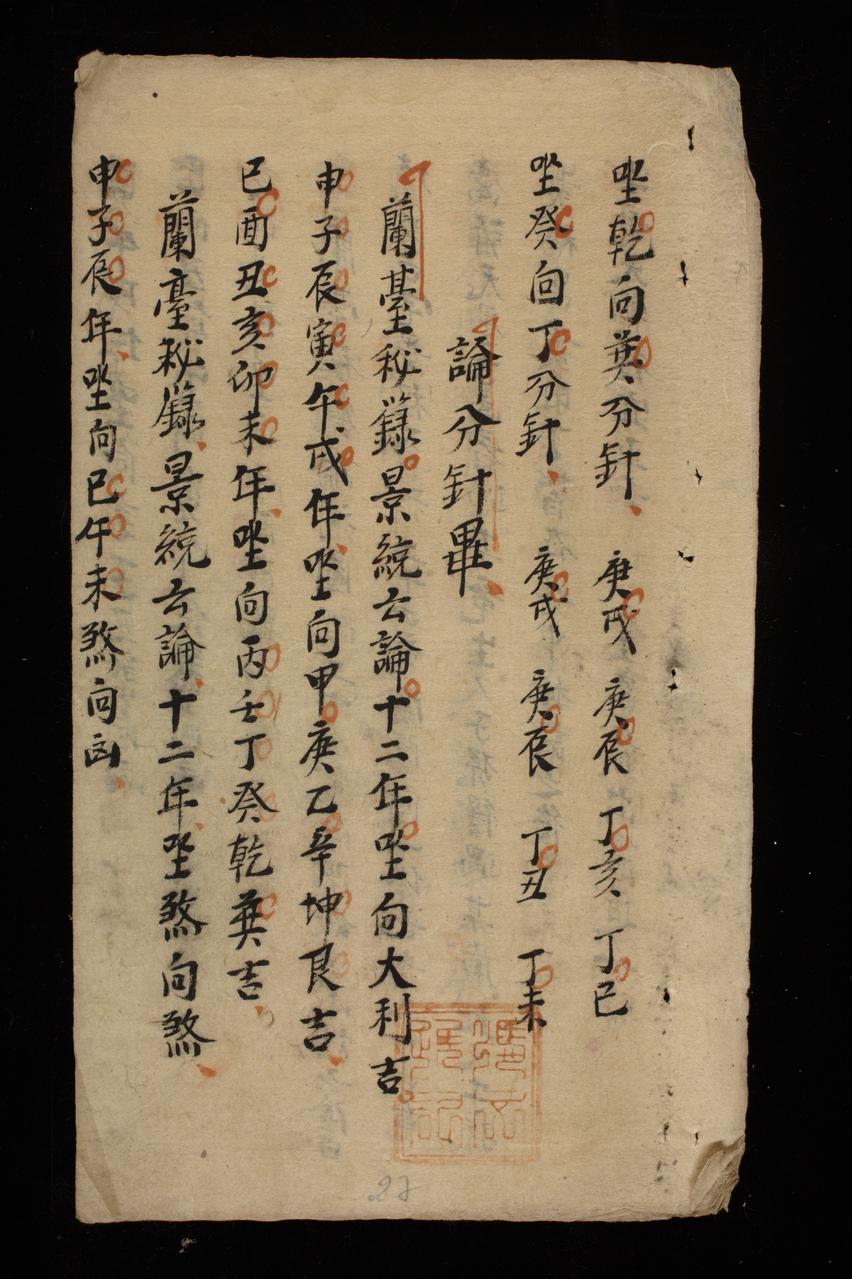 坐乾向巽分針、 庚戍 庚辰 丁亥 丁巳
坐癸向丁分針、 庚戍 庚辰 丁丑 丁未
論分針畢、
蘭臺秘籙景統云論十二年坐向大利吉
申子辰寅午戍年坐向甲庚乙辛坤艮吉、
巳酉丑亥卯未年坐向丙壬丁癸乾巽吉、
蘭臺秘籙、景統云論、十二年、坐煞向煞、
申子辰年、坐向巳午未煞向凶、